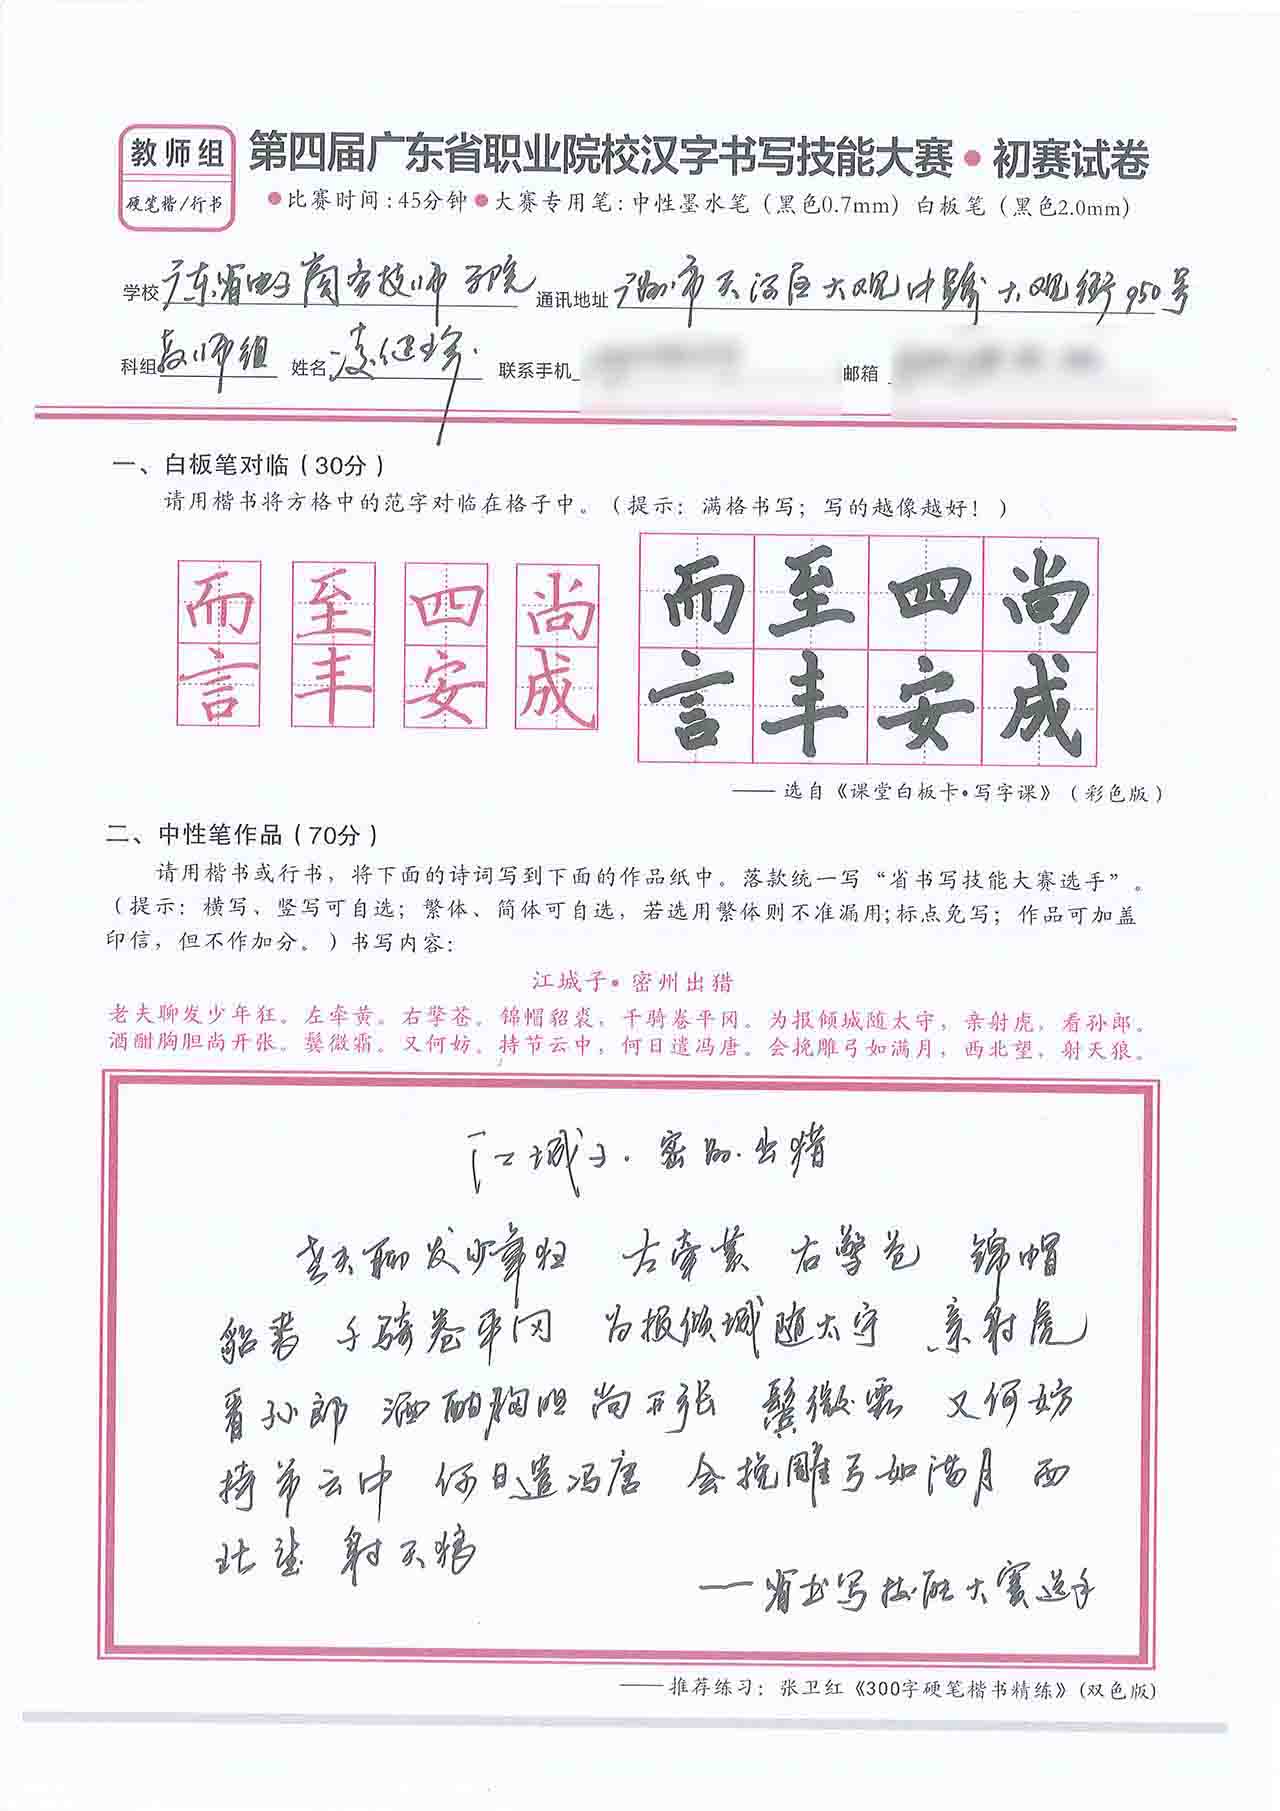 教师组
硬笔楷/行书
第四届广东省职业院校汉字书写技能大赛•初赛试卷
●比赛时间:45分钟●大赛专用笔:中性墨水笔（黑色0.7mm）白板笔（黑色2.0mm）
学校 广东省电子商务技师学院 通讯地址 广州市天河区大观中路大观街950号
科组 教师组 姓名 凌健珍 联系手机 邮箱
一、白板笔对临（30分）
请用楷书将方格中的范字对临在格子中。（提示：满格书写；写的越像越好！）
而 至 四 尚 而 至 四 尚
言 丰 安 成 言 丰 安 成
——选自《课堂白板卡•写字课》（彩色版）
二、中性笔作品（70分）
请用楷书或行书，将下面的诗词写到下面的作品纸中。落款统一写“省书写技能大赛选手”。
（提示：横写、竖写可自选；繁体、简体可自选，若选用繁体则不准漏用;标点免写；作品可加盖
印信，但不作加分。）书写内容：
江城子•密州出猎
老夫聊发少年狂。左牵黄。右擎苍。锦帽貂裘，千骑卷平冈。为报倾城随太守，亲射虎，看孙郎。
酒酣胸胆尚开张。鬓微霜。又何妨。持节云中，何日遣冯唐。会挽雕弓如满月，西北望，射天狼。
江城子·密州·出猎
老夫聊发少年狂 左牵黄 右擎苍 锦帽
貂裘 千骑卷平冈 为报倾城随太守 亲射虎
看孙郎 酒酣胸胆尚开张 鬓微霜 又何妨
持节云中 何日遣冯唐 会挽雕弓如满月 西
北望 射天狼
——省书写技能大赛选手
——推荐练习：张卫红《300字硬笔楷书精练》(双色版)